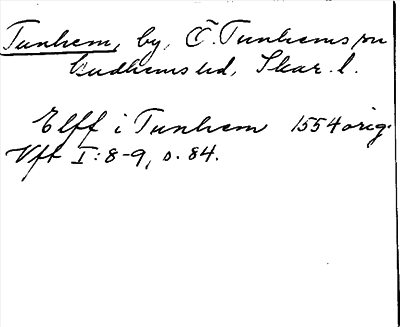 Tunhem, by, Ö. Tunhems sn
Gudhems hd, Skar. l.
Elff i Tunhem 1554 orig.
Vft I: 8-9, s. 84.